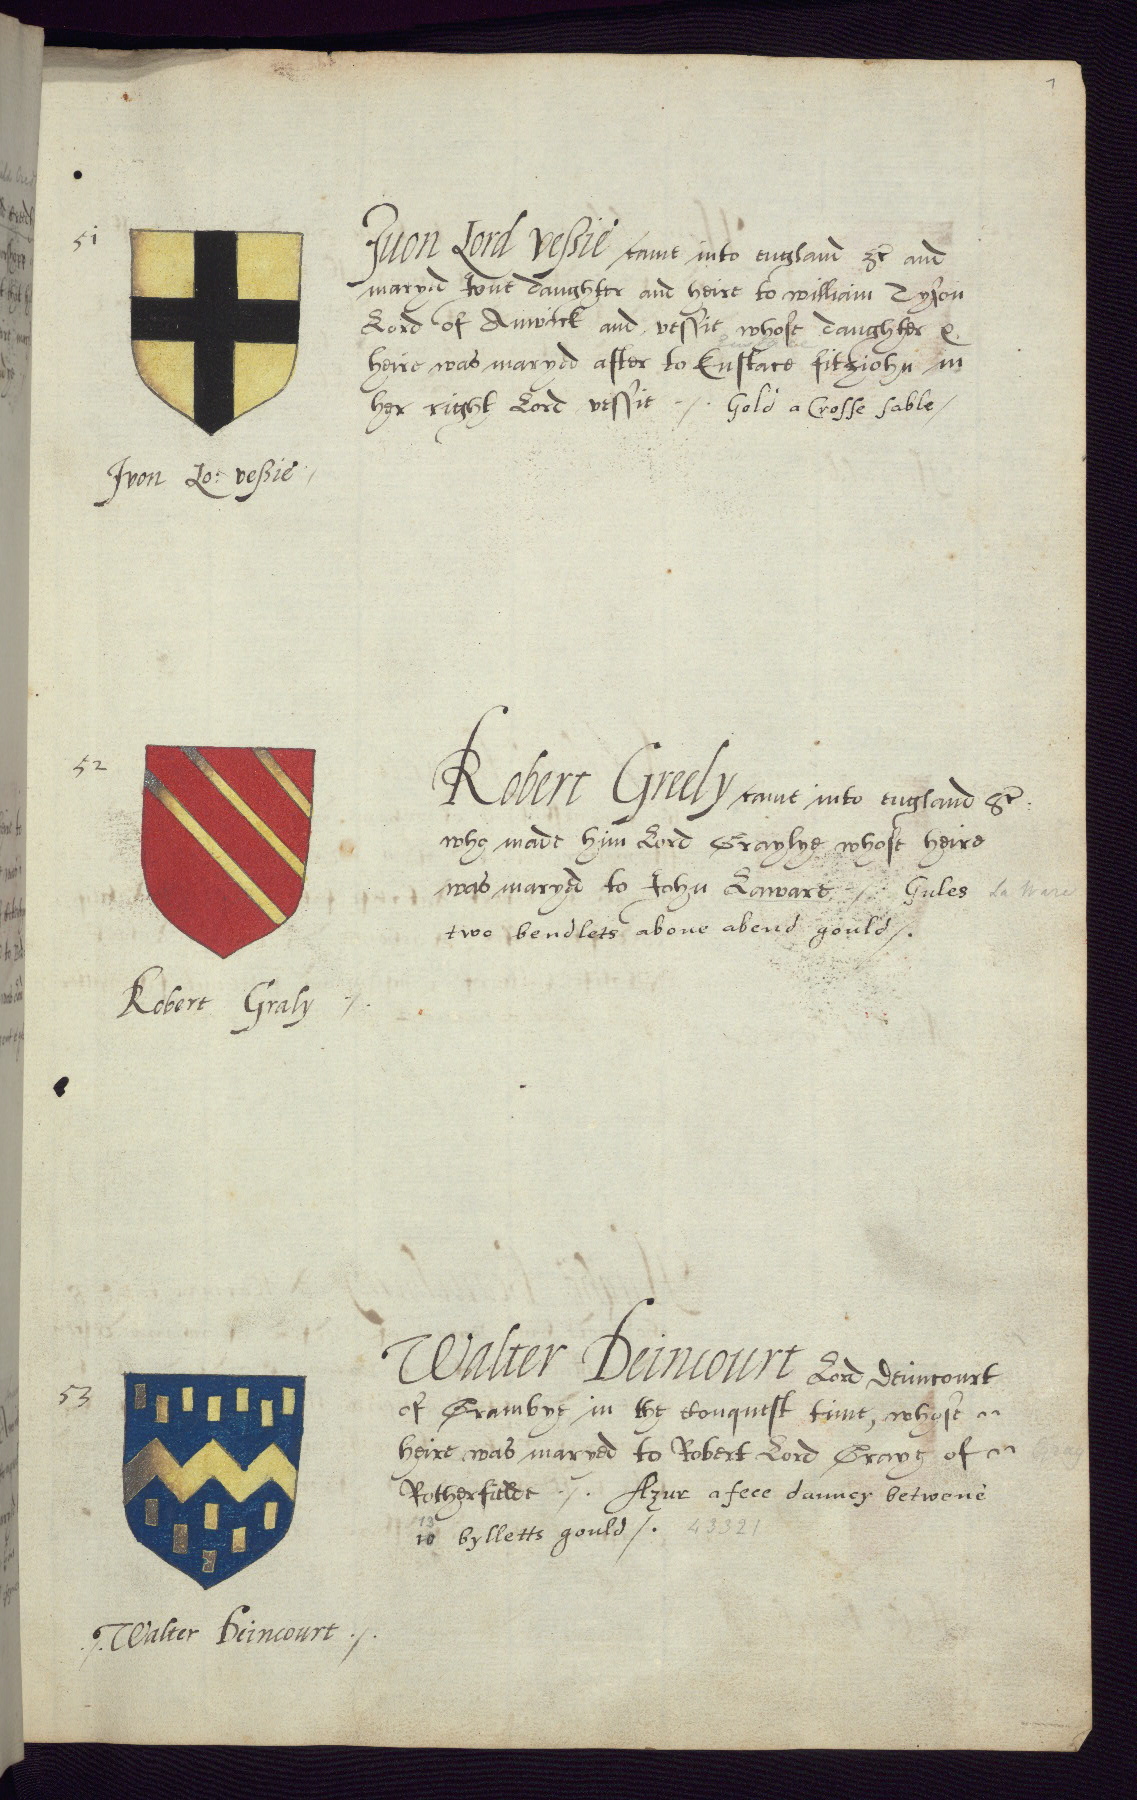 7
51
Juon Lord veßie came into england &c and
maryed Jone daughter and heire to william Tyson
Lord of Anwick and vessie whose daughter &
heire was maryed after to Eustace fitzjohn in
her right Lord vessie -/. Gold a Crosse sable/
Jvon Lo: veßie
52
Robert Greely came into england &c:
who made him Lord Graylye whose heire
was maryed to John Laware /. Gules La Ware
two bendlets aboue abend gould/.
Robert Graly -/.
53
Walter Deincourt Lord deincourt
of Grambye in the Conquest time, whose
heire was maryed to Robert Lord Graye of
Rotherfielde ./. Azur a fece dauncy betwene
13
10 bylletts gould/. 43321
./. Walter Deincourt ./.